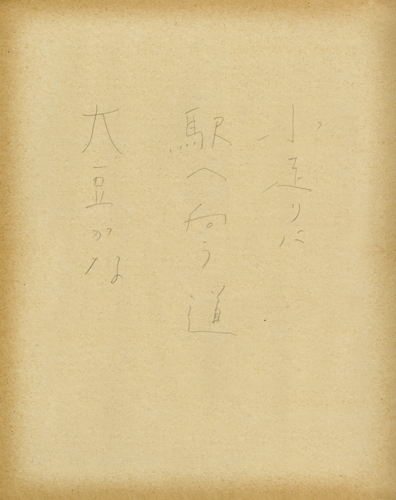 小走りに
駅へ向う道
大豆かな